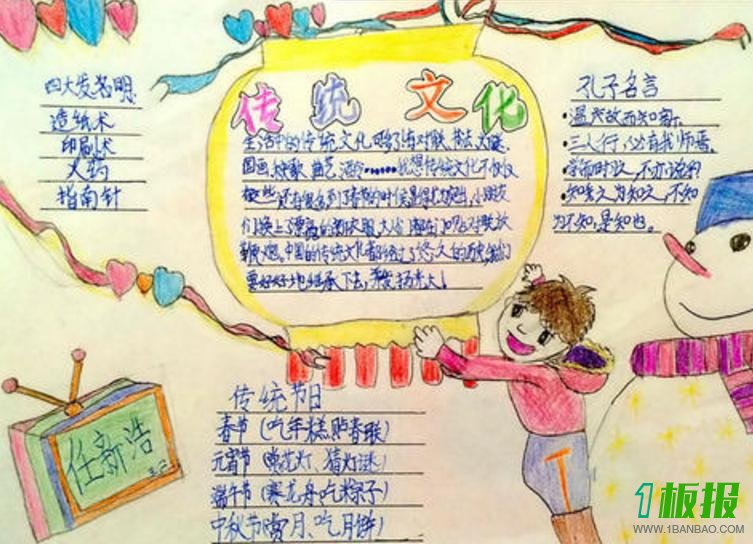 四大发名明
造纸术
印刷术
火药
指南针
传统文化
生活中的传统文化可多了,有对联、书法、灯谜、
国画、
我想传统文化不仅仅
小朋友
们换上了漂亮的新衣服,大人们都在门口贴对联放
鞭炮。中国的传统文化都经过了悠久的历史,我们
要好好地继承下去,发扬光大!
孔子名言
·温故而知新。
·三人行,必有我师焉。
·学而时习,不亦说
·知之为知之,不知
为不知,是知也。
任新浩
传统节日
春节(吃年糕,贴春联
元宵节(赏花灯、猜灯谜)
端午节(赛龙舟吃粽子)
中秋节(赏月、吃月饼)
1板报
WWW.1BANBAO.COM